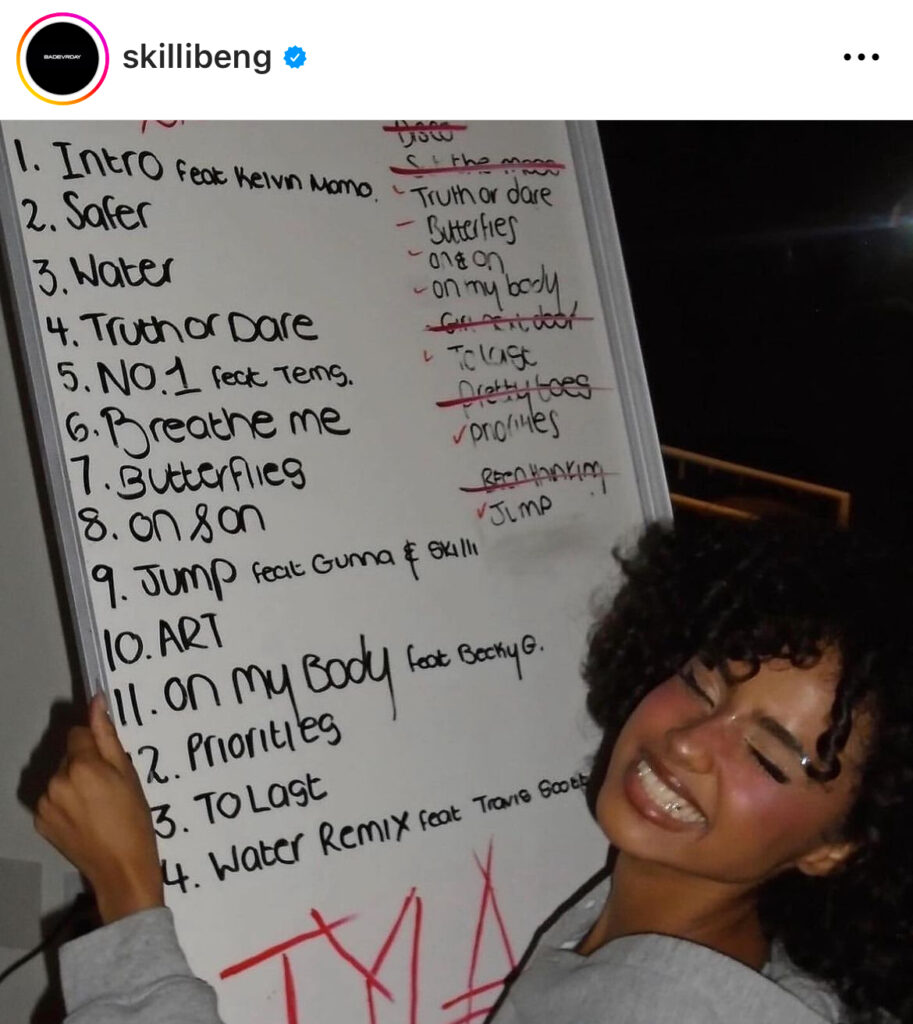 BADEVRDAY
skillibeng
1. Intro feat Kelvin Momo.
2. Safer
3. Water
4. Truth or Dare
5. NO.1 feat Tems.
6. Breathe me
7. Butterflies
8. on & on
9. Jump feat Gunna & Skilli
10. ART
11. on my Body feat Becky G.
2. Priorities
3. To Last
4. Water Remix feat Travis Scott
TYLA
Disco
the moon
Truth or dare
Butterflies
on & on
on my body
Girl next door
To last
Pretty toes
priorities
Been thinking
Jump